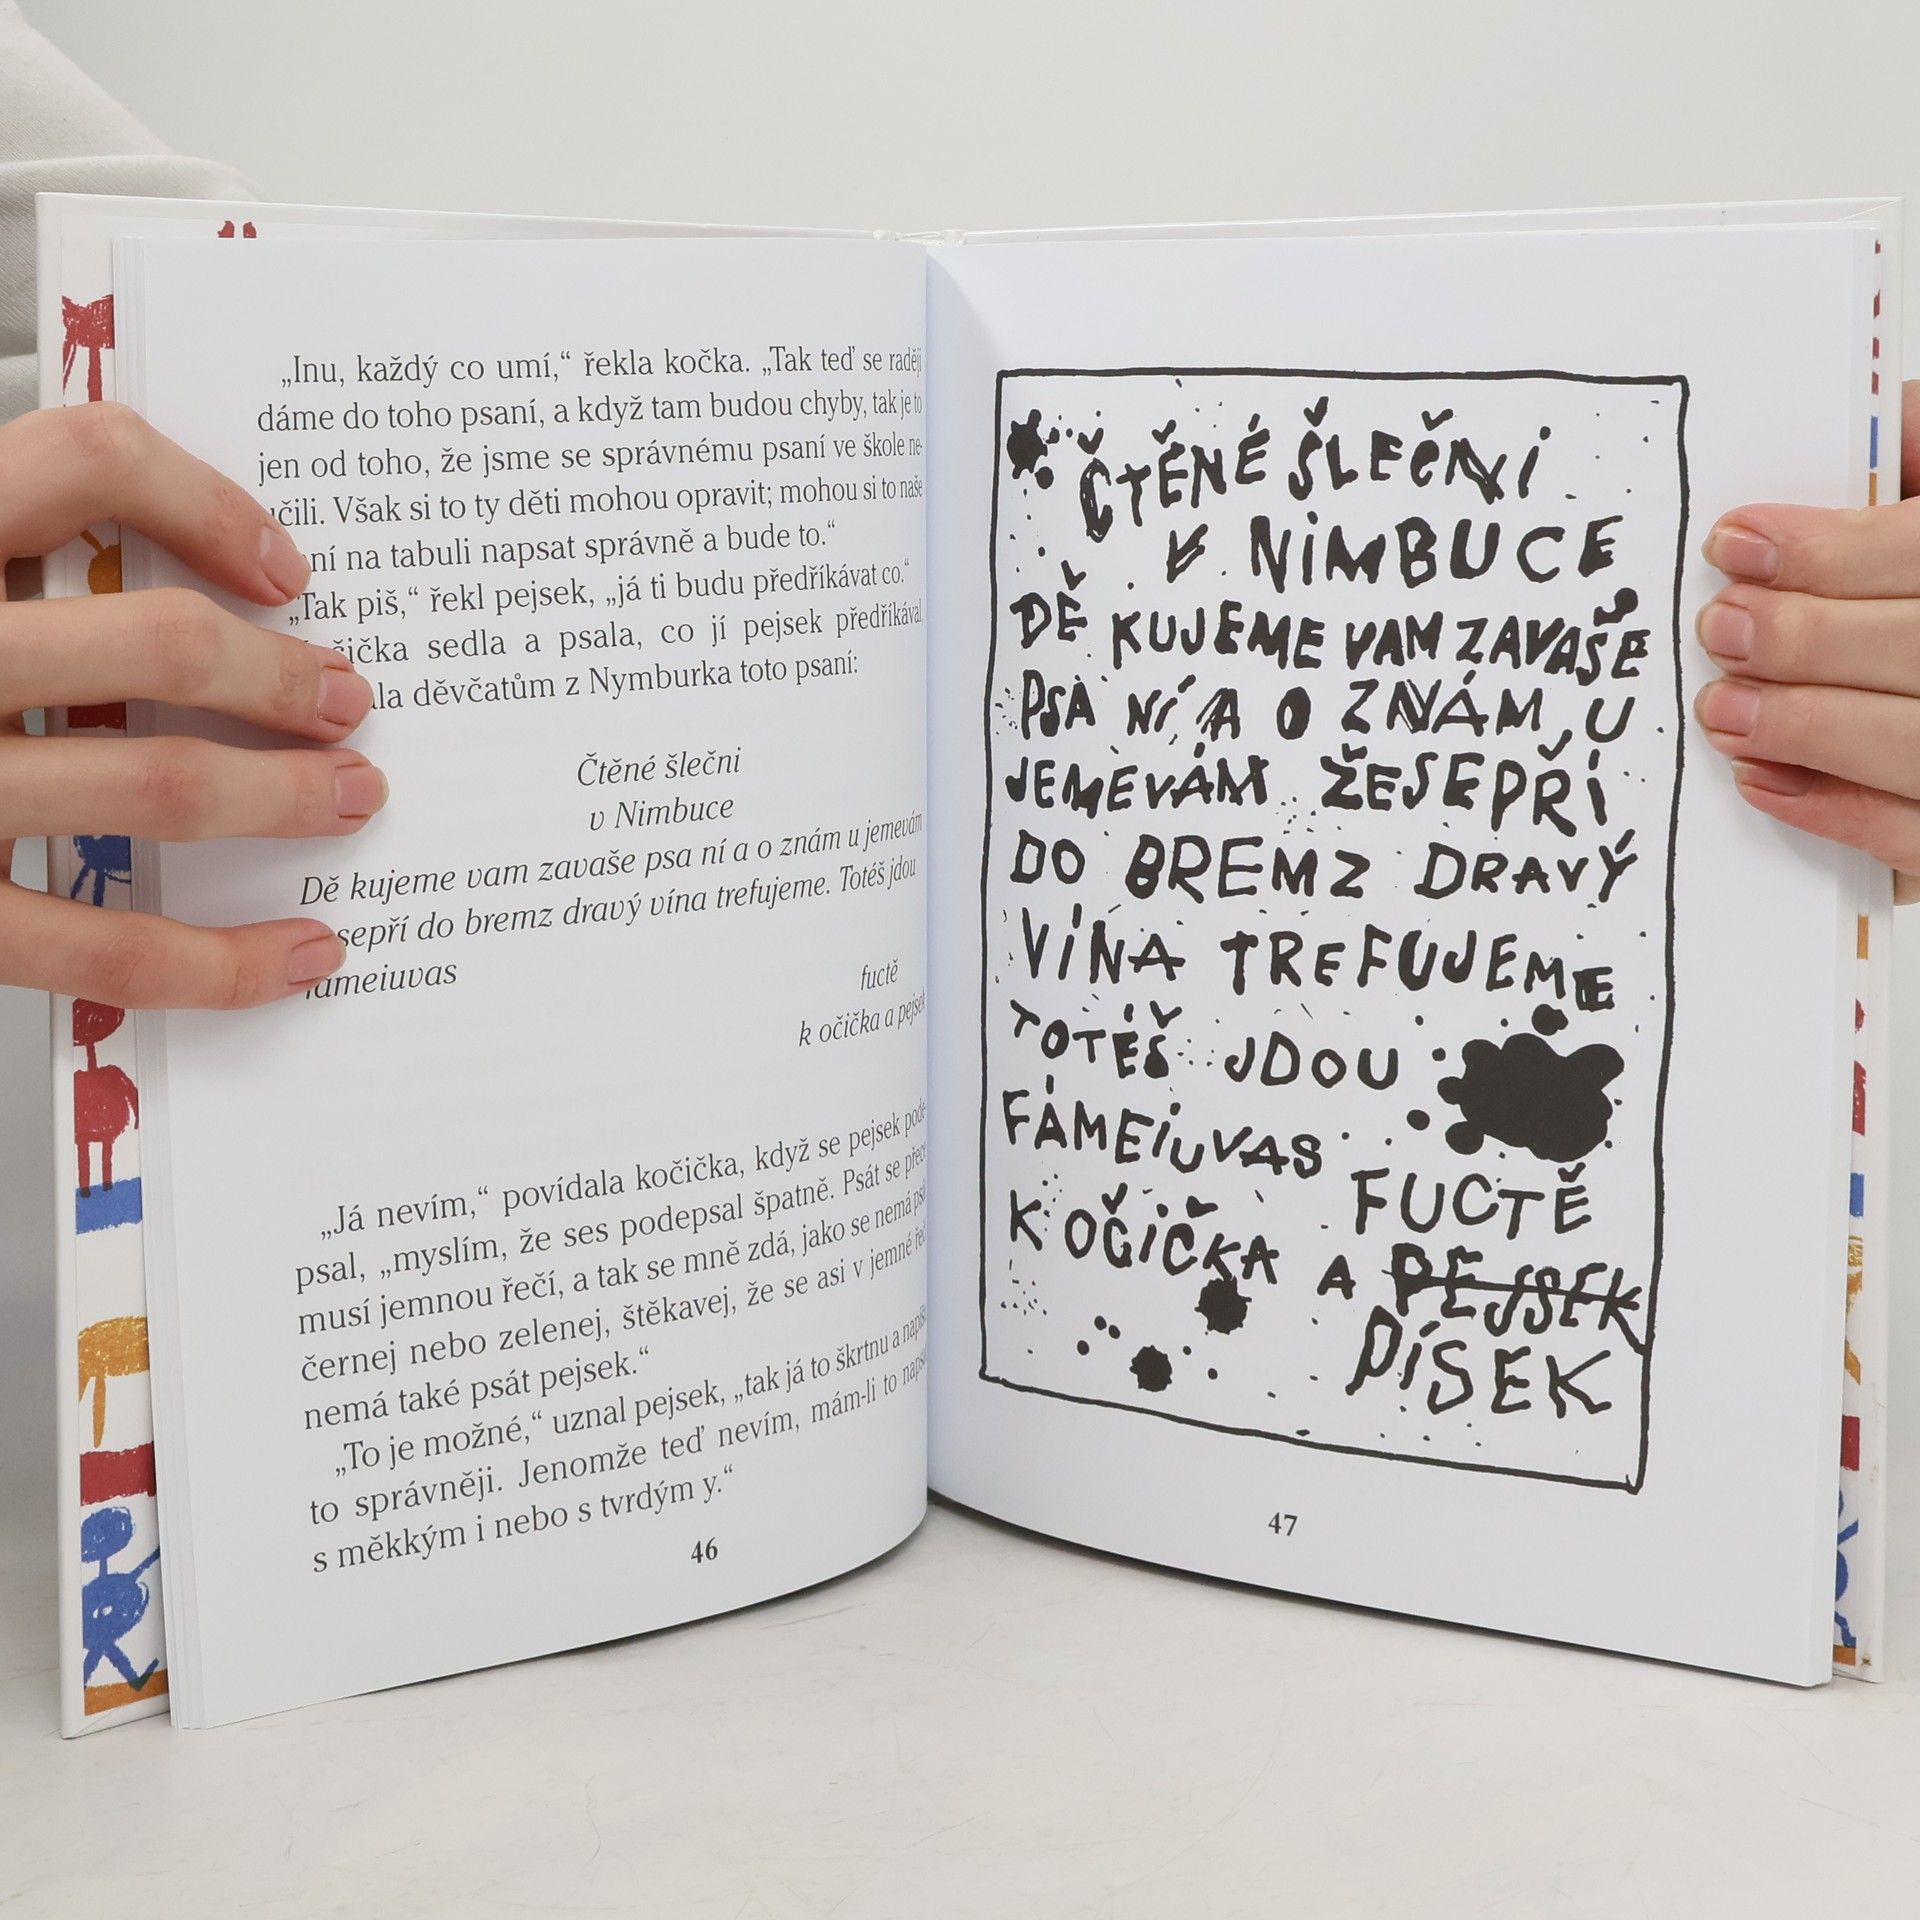 „Inu, každý co umí,“ řekla kočka. „Tak teď se raději
dáme do toho psaní, a když tam budou chyby, tak je to
jen od toho, že jsme se správnému psaní ve škole ne-
učili. Však si to ty děti mohou opravit; mohou si to naše
na tabuli napsat správně a bude to.“
„Tak piš,“ řekl pejsek, „já ti budu předříkávat co.“
sedla a psala, co jí pejsek předříkával,
děvčatům z Nymburka toto psaní:
Čtěné šlečni
v Nimbuce
Dě kujeme vam zavaše psa ní a o znám u jemevám
sepří do bremz dravý vína trefujeme. Totéš jdou
fámeiuvas
fuctě
k očička a pejsek
„Já nevím,“ povídala kočička, když se pejsek pode-
psal, „myslím, že ses podepsal špatně. Psát se přece
musí jemnou řečí, a tak se mně zdá, jako se nemá psát
černej nebo zelenej, štěkavej, že se asi v jemné řeči
nemá také psát pejsek.“
„To je možné,“ uznal pejsek, „tak já to škrtnu a napíšu
to správněji. Jenomže teď nevím, mám-li to napsat
s měkkým i nebo s tvrdým y.“
46
ČTĚNÉ ŠLEČNI
V NIMBUCE
DĚ KUJEME VAM ZAVAŠE
PSA NÍ A O ZNÁM U
JEMEVÁM ŽESEPŘÍ
DO BREMZ DRAVÝ
VÍNA TREFUJEME
TOTÉŠ JDOU
FÁMEIUVAS
FUCTĚ
K OČIČKA A PEJSEK
PÍSEK
47